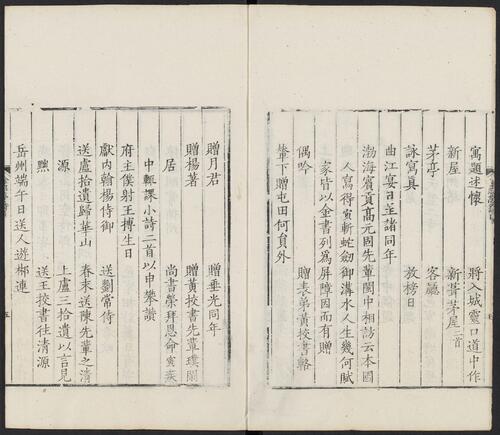 寓題述懷　將入城靈口道中作
新屋　新葺茅屋二首
茅亭　客廳
詠寫真　放榜日
曲江宴日呈諸同年
渤海賓貢高元固先輩閩中相訪云本國
人寫得寅斬蛇劍御溝水人生幾何賦
家皆以金書列為屏障因而有贈
偶吟　贈表弟黃校書輅
輦下贈屯田何員外
贈月君　贈垂光同年
贈楊著　贈黃校書先輩璞閑
居　尚書榮拜恩命寅疾
中輒課小詩二首以申攀讚
府主僕射王摶生日
獻内翰楊侍御　送劉常侍
送盧拾遺歸華山　春末送陳先輩之清
源　上盧三拾遺以言見
黜　送王校書往清源
岳州端午日送人遊郴連